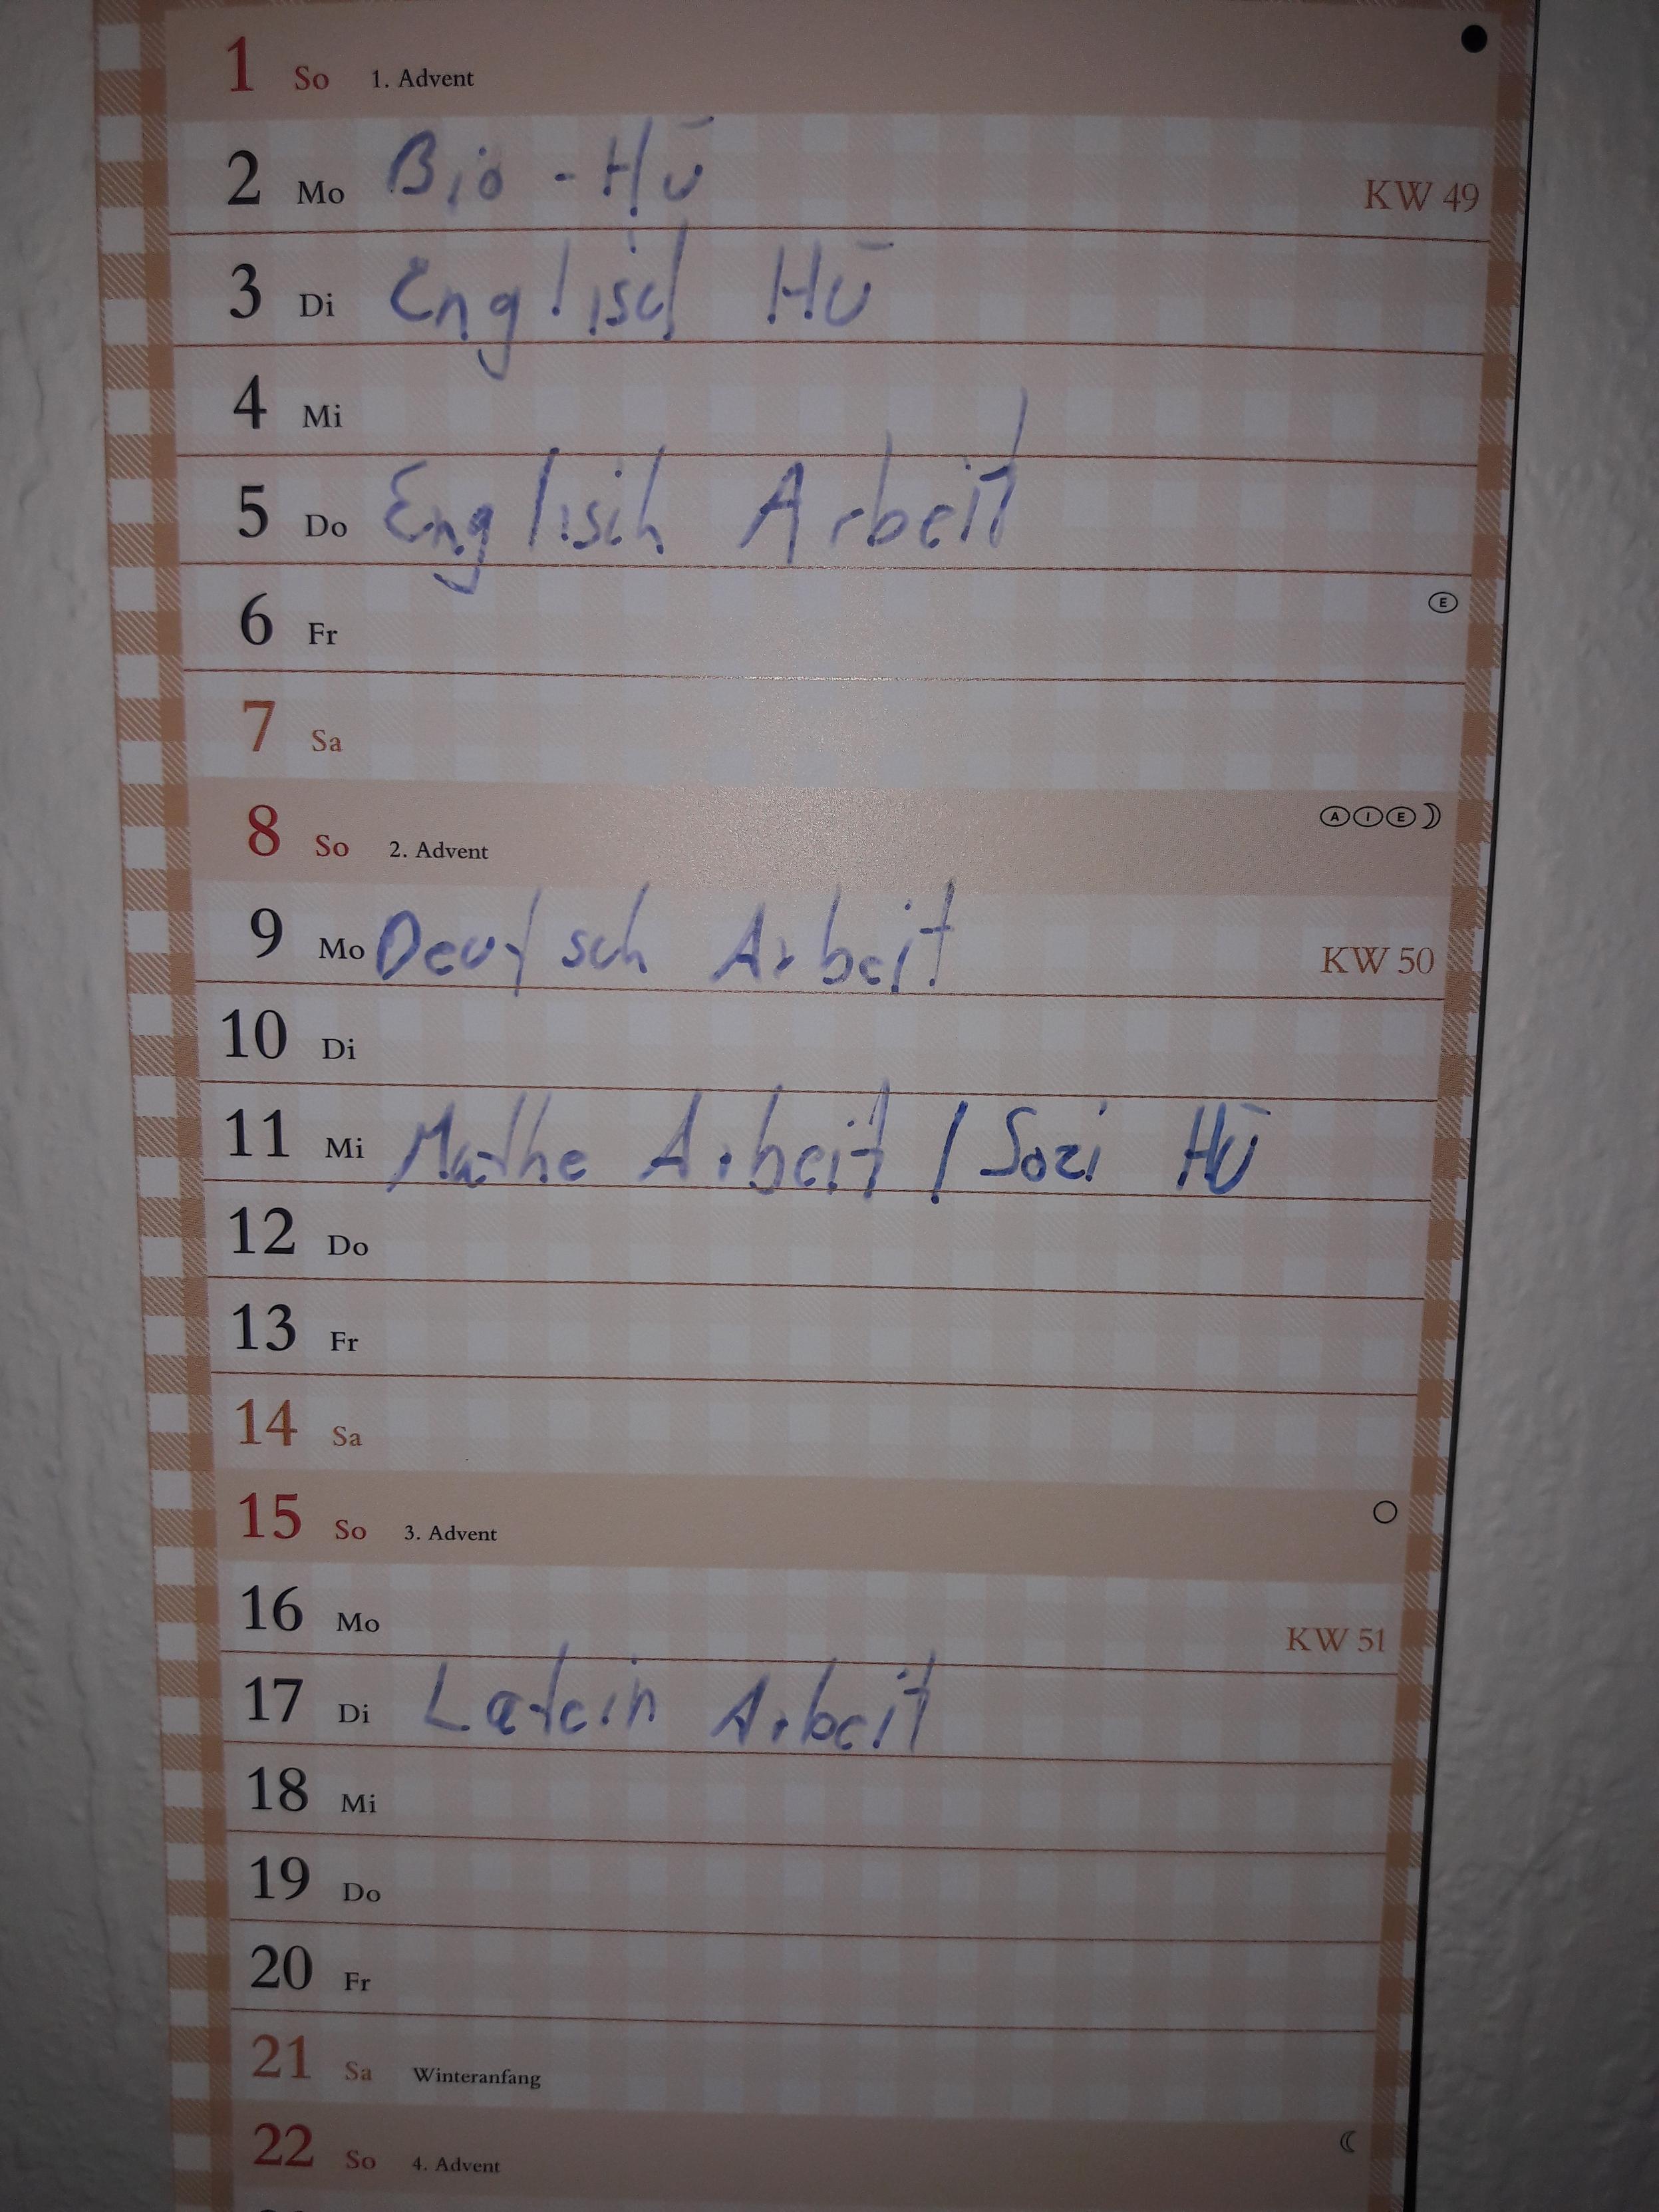 1 So 1. Advent
2 Mo Bio - HÜ KW 49
3 Di Englisch HÜ
4 Mi
5 Do Englisch Arbeit
6 Fr E
7 Sa
8 So 2. Advent A I E
9 Mo Deutsch Arbeit KW 50
10 Di
11 Mi Mathe Arbeit / Sozi HÜ
12 Do
13 Fr
14 Sa
15 So 3. Advent
16 Mo KW 51
17 Di Latein Arbeit
18 Mi
19 Do
20 Fr
21 Sa Winteranfang
22 So 4. Advent